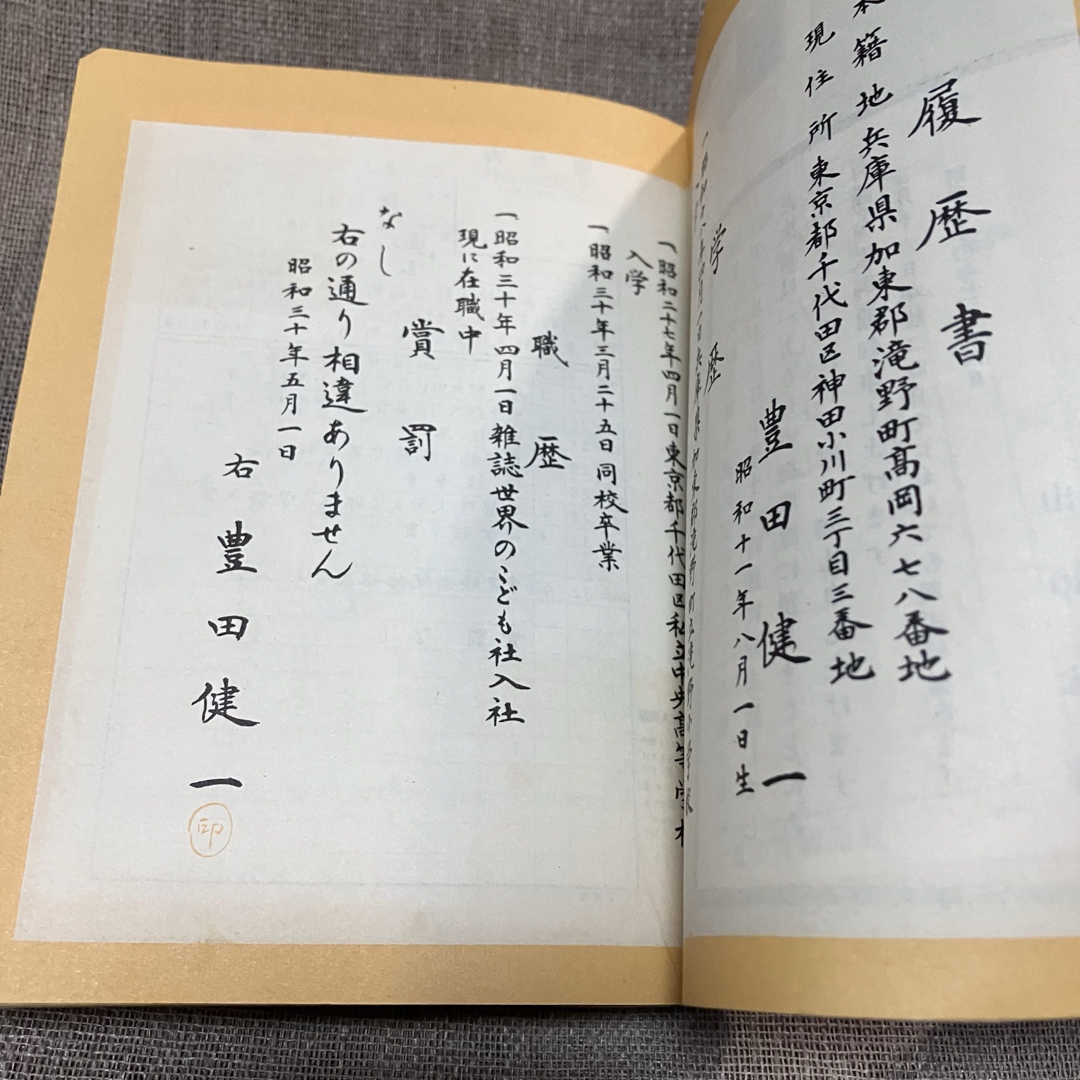 履歴書
本籍地 兵庫県加東郡滝野町高岡六七八番地
現住所 東京都千代田区神田小川町三丁目三番地
豊田健一
昭和十一年八月一日生
学歴
一昭和二十七年四月一日東京都千代田区私立中央高等学校
入学
一昭和三十年三月二十五日同校卒業
職歴
一昭和三十年四月一日雑誌世界のこども社入社
現に在職中
賞罰
なし
右の通り相違ありません
昭和三十年五月一日
右 豊田健一
印